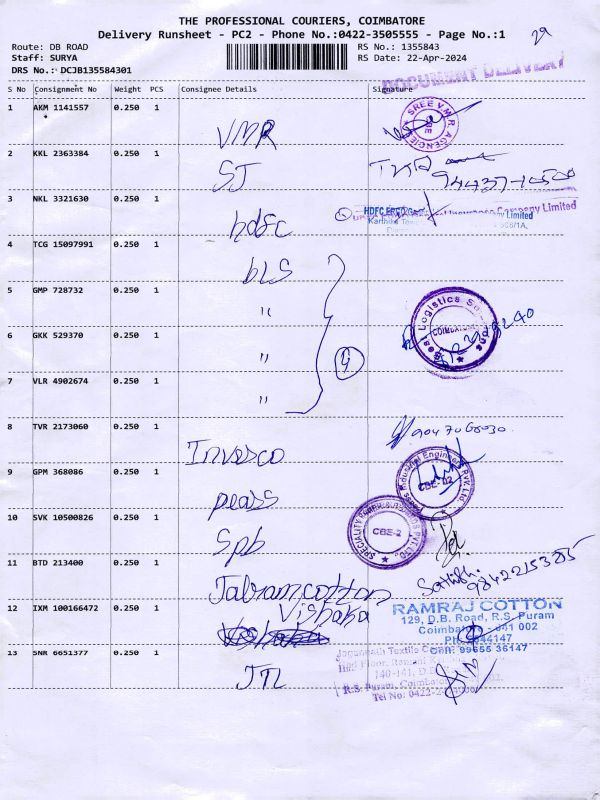 THE PROFESSIONAL COURIERS, COIMBATORE
Delivery Runsheet - PC2 - Phone No.:0422-3505555 - Page No.:1
29
Route: DB ROAD
Staff: SURYA
DRS No.: DCJB135584301
RS No.: 1355843
RS Date: 22-Apr-2024
DOCUMENT DELIVERY
S No Consignment No Weight PCS Consignee Details Signature
1 AKM 1141557 0.250 1 VMR
SREE V.M.R AGENCIES
2 KKL 2363384 0.250 1 SJ
94437-10500
3 NKL 3321630 0.250 1 hdfc
HDFC ERGO Company Limited
4 TCG 15097991 0.250 1 bLS
5 GMP 728732 0.250 1 "
6 GKK 529370 0.250 1 "
7 VLR 4902674 0.250 1 "
4
Logistics
COIMBATORE
8 TVR 2173060 0.250 1 Invesco
9 GPM 368086 0.250 1 peass
Industrial Engineers PVT. LTD.
CBE-02
10 SVK 10500826 0.250 1 Spb
SPECIALITY PVT LTD.
CBE-2
11 BTD 213400 0.250 1 Jabramcotton
Sathish.
9842215385
12 IXM 100166472 0.250 1 Vishaka
RAMRAJ COTTON
129, D.B. Road, R.S. Puram
Coimbatore - 641 002
Cell: 99655 36147
13 SNR 6651377 0.250 1 JTL
Jagannath Textile
140-141, D.
R.S. Puram, Coimbatore
Tel No: 0422-